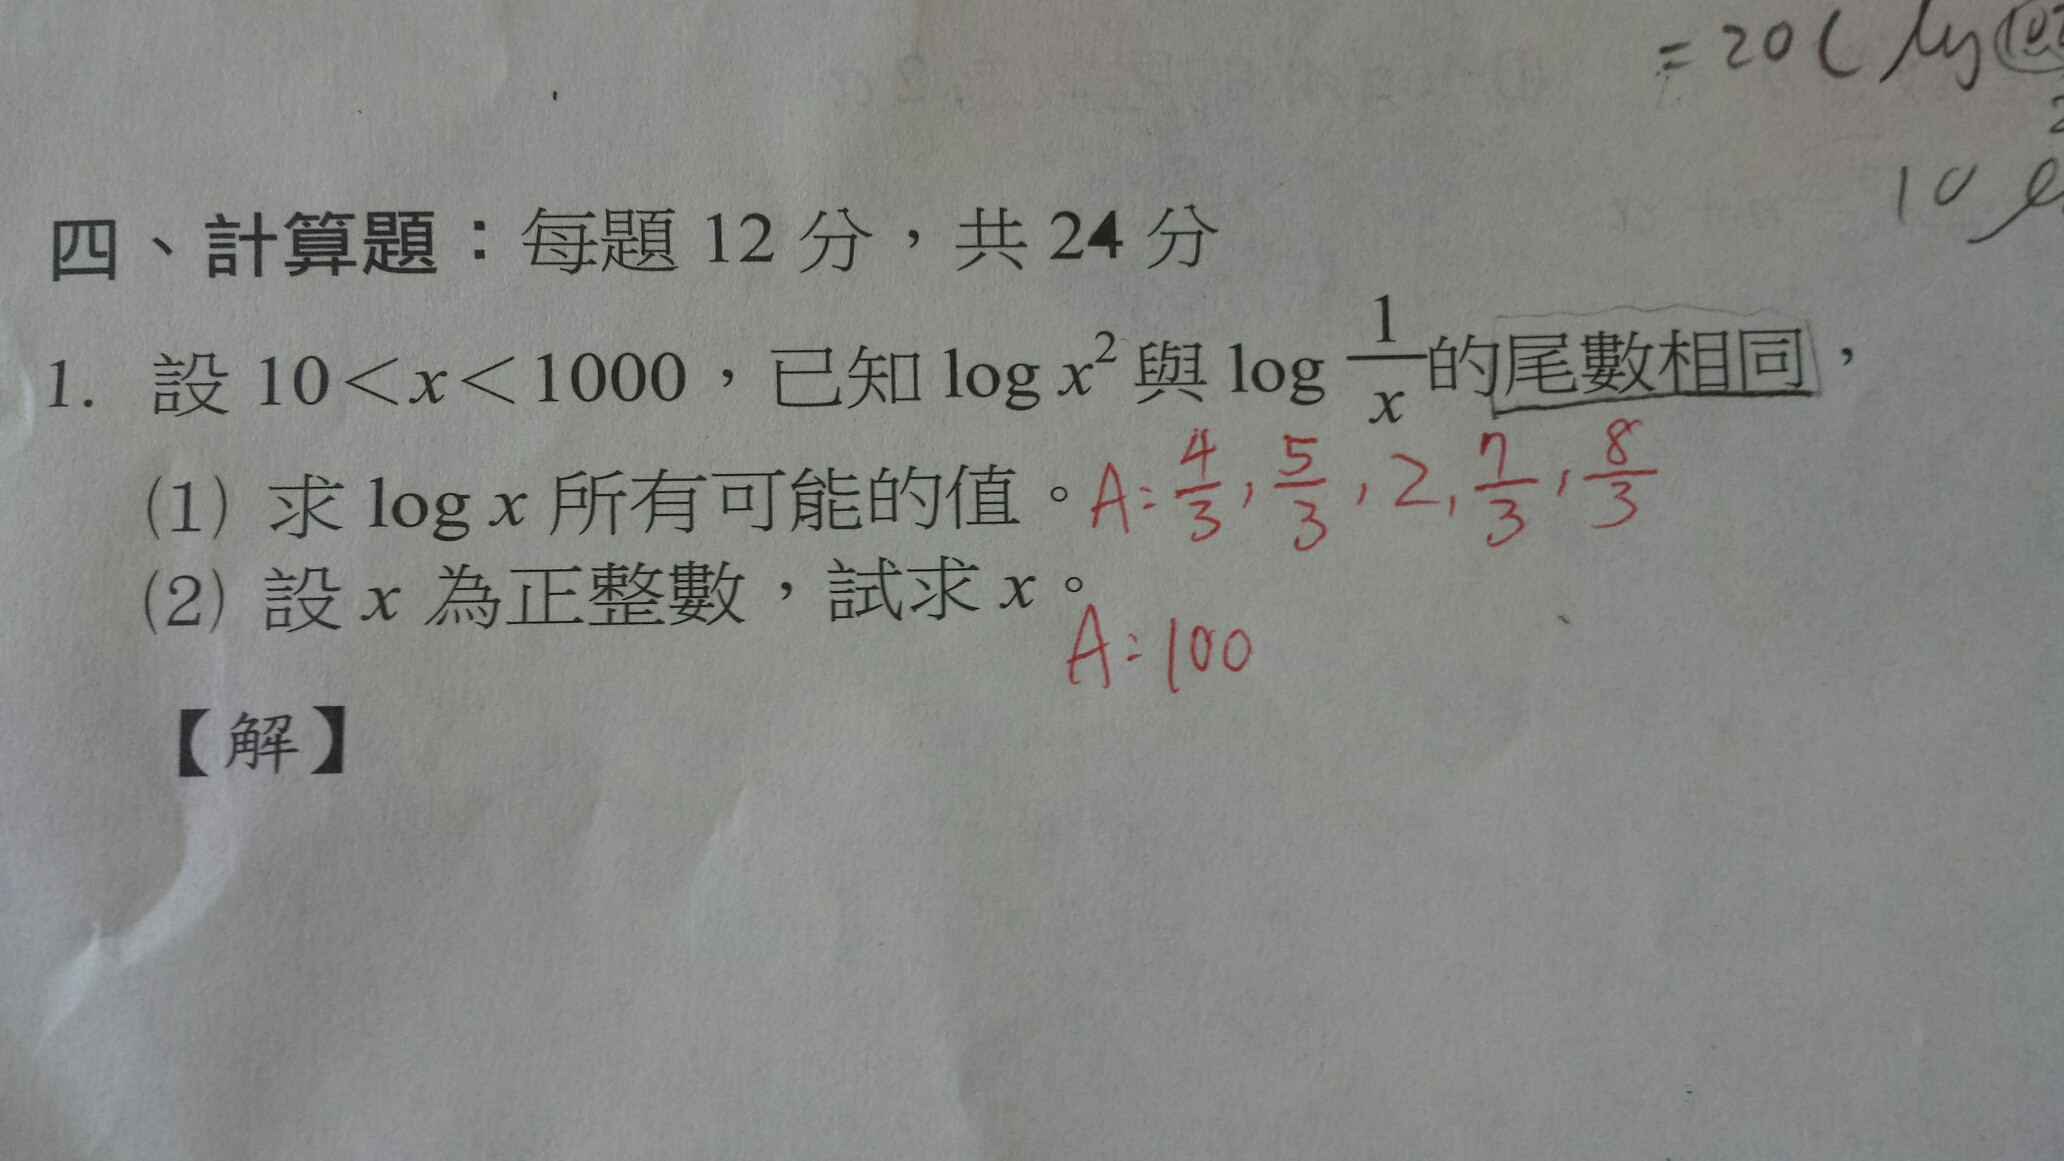 =20(log
10
四、計算題：每題 12 分，共 24 分
1. 設 10＜x＜1000，已知 log x² 與 log 1/x 的尾數相同，
(1) 求 log x 所有可能的值。A: 4/3, 5/3, 2, 7/3, 8/3
(2) 設 x 為正整數，試求 x。
A: 100
【解】